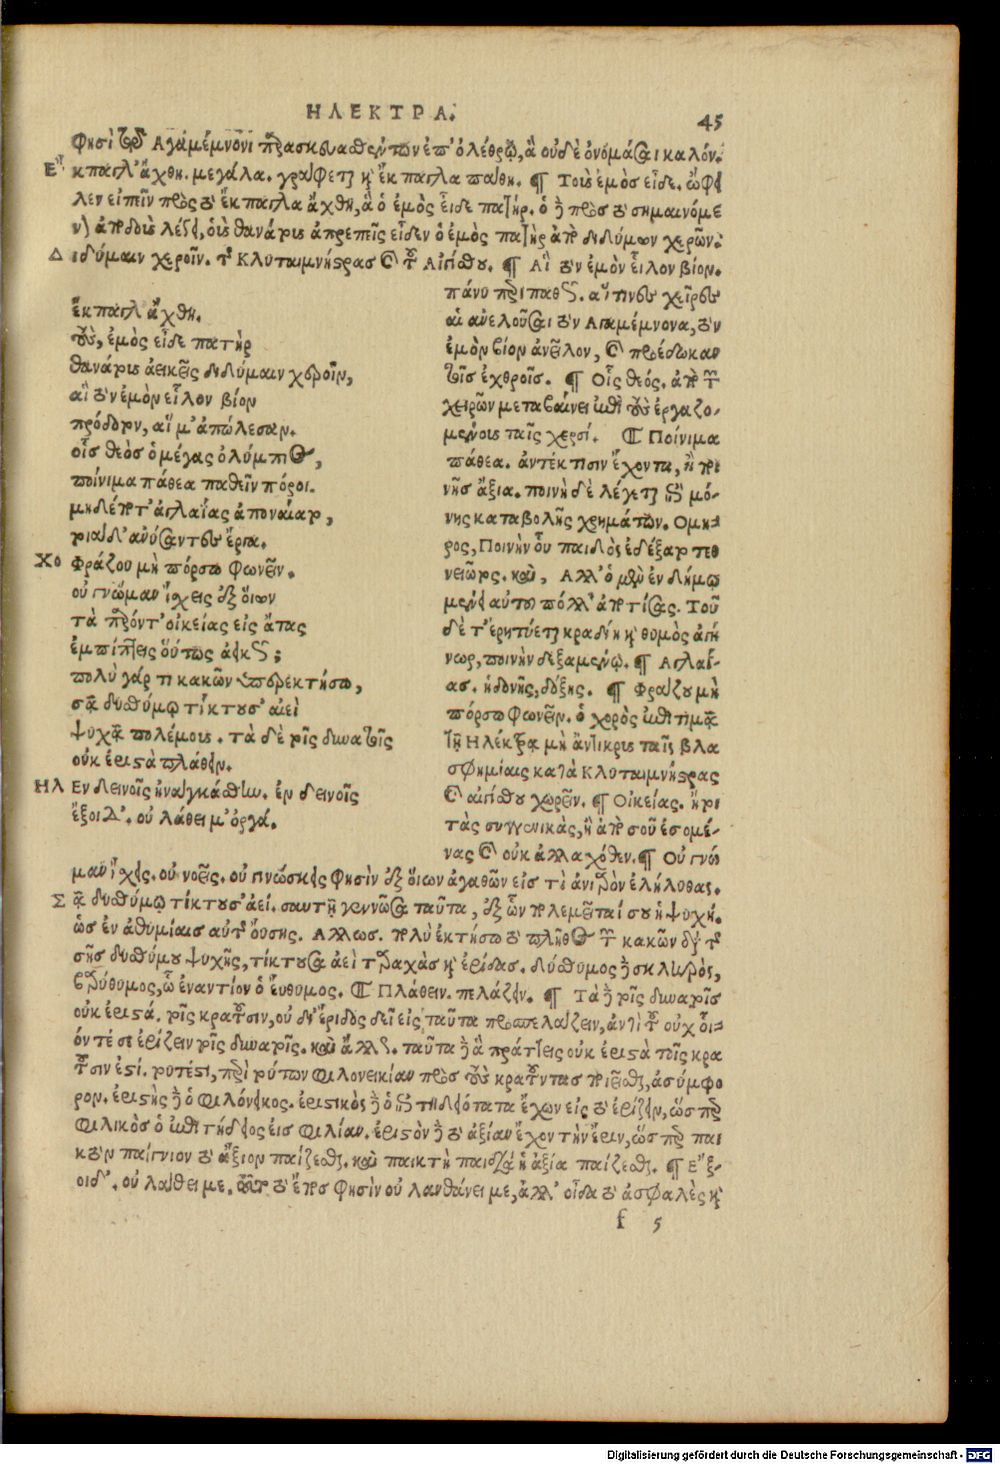 ΗΛΕΚΤΡΑ.
45
φησὶ τῷ Ἀγαμέμνονι παρασκευασθέντων ἐπ' ὀλέθρῳ, ἃ οὐδὲ ὀνομάσαι καλόν.
Ἔκπαγλ' ἄχθη. μεγάλα. γράφεται καὶ ἔκπαγλα πάθη. ¶ Τοὺς ἐμὸς εἶδε. ὤφει
λεν εἰπεῖν πρὸς τὸ ἔκπαγλα ἄχθη, ἃ ὁ ἐμὸς εἶδε πατήρ. ὁ δὲ πρὸς τὸ σημαινόμε
νον ἀποδοὺς λέγει, οὓς θανάτους ἀπρεπεῖς εἶδεν ὁ ἐμὸς πατὴρ ἀπὸ διδύμων χερῶν.
Διδύμαιν χεροῖν. τῆς Κλυταιμνήστρας καὶ τοῦ Αἰγίσθου. ¶ Αἳ τὸν ἐμὸν εἷλον βίον.
ἔκπαγλ' ἄχθη.
τοὺς ἐμὸς εἶδε πατὴρ
θανάτους ἀεικεῖς διδύμαιν χεροῖν,
αἳ τὸν ἐμὸν εἷλον βίον
πρόδοτον, αἵ μ' ἀπώλεσαν.
οἷς θεὸς ὁ μέγας ὀλύμπιος,
ποίνιμα πάθεα παθεῖν πόροι.
μηδέποτ' ἀγλαΐας ἀποναίατο,
τοιάδ' ἀνύσαντες ἔργα.
ΧΟ Φράζου μὴ πόρσω φωνεῖν.
οὐ γνώμαν ἴσχεις ἐξ οἵων
τὰ παρόντ' οἰκείας εἰς ἄτας
ἐμπίπτεις οὕτως ἀικῶς;
πολὺ γάρ τι κακῶν ὑπερεκτήσω,
σᾷ δυσθύμῳ τίκτουσ' αἰεὶ
ψυχᾷ πολέμους. τὰ δὲ τοῖς δυνατοῖς
οὐκ ἐριστὰ πλάθειν.
ΗΛ Ἐν δεινοῖς ἠναγκάσθην. ἐν δεινοῖς
ἔξοιδ'. οὐ λάθει μ' ὀργά.
πάνυ περιπαθῶς. αἵ τινες χεῖρες
αἱ ἀνελοῦσαι τὸν Ἀγαμέμνονα, τὸν
ἐμὸν βίον ἀνεῖλον, καὶ προέδωκαν
τοῖς ἐχθροῖς. ¶ Οἷς θεός. ἀπὸ τῶν
χειρῶν μεταβαίνει ἐπὶ τοὺς ἐργαζο-
μένους ταῖς χερσί. ¶ Ποίνιμα
πάθεα. ἀντέκτισιν ἔχοντα, ἢ ποι
νῆς ἄξια. ποινὴ δὲ λέγεται οὐ μό-
νης καταβολῆς χρημάτων. Ὅμη-
ρος, Ποινὴν οὗ παιδὸς ἐδέξατο τεθ
νειῶτος. καὶ, Ἀλλ' ὁ μὲν ἐν δήμῳ
μένει αὐτοῦ πόλλ' ἀποτίσας. Τοῦ
δὲ τ' ἐρητύεται κραδίη καὶ θυμὸς ἀγή
νωρ, ποινὴν δεξαμένῳ. ¶ Ἀγλαΐ-
ας. ἡδονῆς, δόξης. ¶ Φράζου μὴ
πόρσω φωνεῖν. ὁ χορὸς ἐπιτιμᾷ
τῇ Ἠλέκτρᾳ μὴ ἄντικρυς ταῖς βλα
σφημίαις κατὰ Κλυταιμνήστρας
καὶ αἰγίσθου χωρεῖν. ¶ Οἰκείας. ἤτοι
τὰς συγγονικὰς, ἢ ἀπὸ σοῦ ἐσομέ-
νας καὶ οὐκ ἀλλαχόθεν. ¶ Οὐ γνώ
μαν ἴσχεις. οὐ νοεῖς. οὐ γινώσκεις φησὶν ἐξ οἵων ἀγαθῶν εἰς τὸ ἀνιαρὸν ἐλήλυθας.
Σᾷ δυσθύμῳ τίκτουσ' ἀεί. σαυτῇ γεννῶσα ταῦτα, ἐξ ὧν πολεμεῖταί σου ἡ ψυχή.
ὡς ἐν ἀθυμίαις αὐτῆς οὔσης. Ἄλλως. πολὺ ἐκτήσω τὸ πλῆθος τῶν κακῶν διὰ τῆς
σῆς δυσθύμου ψυχῆς, τίκτουσα ἀεὶ ταραχὰς καὶ ἔριδας. δύσθυμος δὲ σκληρὸς,
βαρύθυμος, ᾧ ἐναντίον ὁ εὔθυμος. ¶ Πλάθειν. πελάζειν. ¶ Τὰ δὲ τοῖς δυνατοῖς
οὐκ ἐριστά. τοῖς κρατοῦσιν, οὐ δι' ἔριδος δεῖ εἰς ταῦτα προσπελάζειν, ἀντὶ τοῦ οὐχ οἷ-
όν τέ σε ἐρίζειν τοῖς δυνατοῖς. καὶ ἄλλως. ταῦτα δὲ ἃ πράττεις οὐκ ἐριστὰ τοῖς κρα
τοῦσιν ἐστί. τουτέστι, περὶ τούτων φιλονεικίαν πρὸς τοὺς κρατοῦντας ποιεῖσθαι, ἀσύμφο
ρον. ἐριστὴς δὲ ὁ φιλόνεικος. ἐριστικὸς δὲ ὁ ἐπιτηδειότατα ἔχων εἰς τὸ ἐρίζειν, ὥσπερ
φιλικὸς ὁ ἐπιτήδειος εἰς φιλίαν. ἐριστὸν δὲ τὸ ἀξίαν ἔχον τὴν ἔριν, ὥσπερ παι
κτὸν παίγνιον τὸ ἄξιον παίζεσθαι. καὶ παικτὴ παιδιὰ ἡ ἀξία παίζεσθαι. ¶ Ἔξ-
οιδ'. οὐ λάθει με. ἀντὶ τοῦ φησὶν οὐ λανθάνει με, ἀλλ' οἶδα τὸ ἀσφαλὲς καὶ
f 5
Digitalisierung gefördert durch die Deutsche Forschungsgemeinschaft - DFG